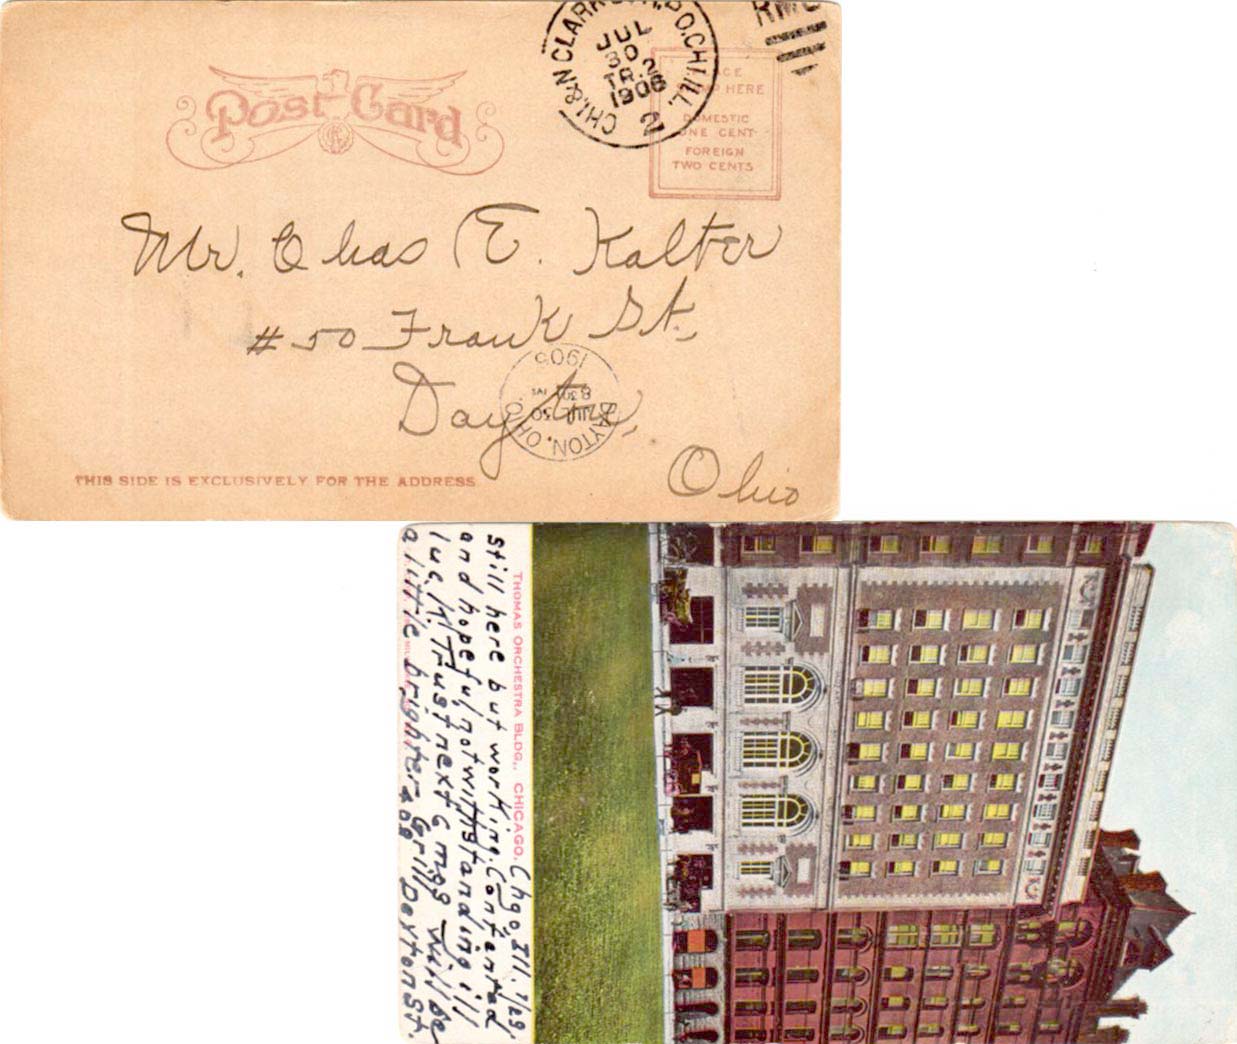 Post Card
CHI. & N CLARK ST. R.P.O. CHI. ILL.
JUL
30
TR. 2
1906
2
PLACE
STAMP HERE
DOMESTIC
ONE CENT
FOREIGN
TWO CENTS
Mr. Chas E. Kalter
#50 Frank St.,
Dayton,
Ohio
DAYTON, OHIO.
JUL 30
830
1906
THIS SIDE IS EXCLUSIVELY FOR THE ADDRESS
THOMAS ORCHESTRA BLDG., CHICAGO.
Chgo Ill. 7/29,
still here but working. Contented
and hopeful, notwithstanding ill
luck. Trust next 6 mos will be
a little brighter. Grill
209 Dexton St.